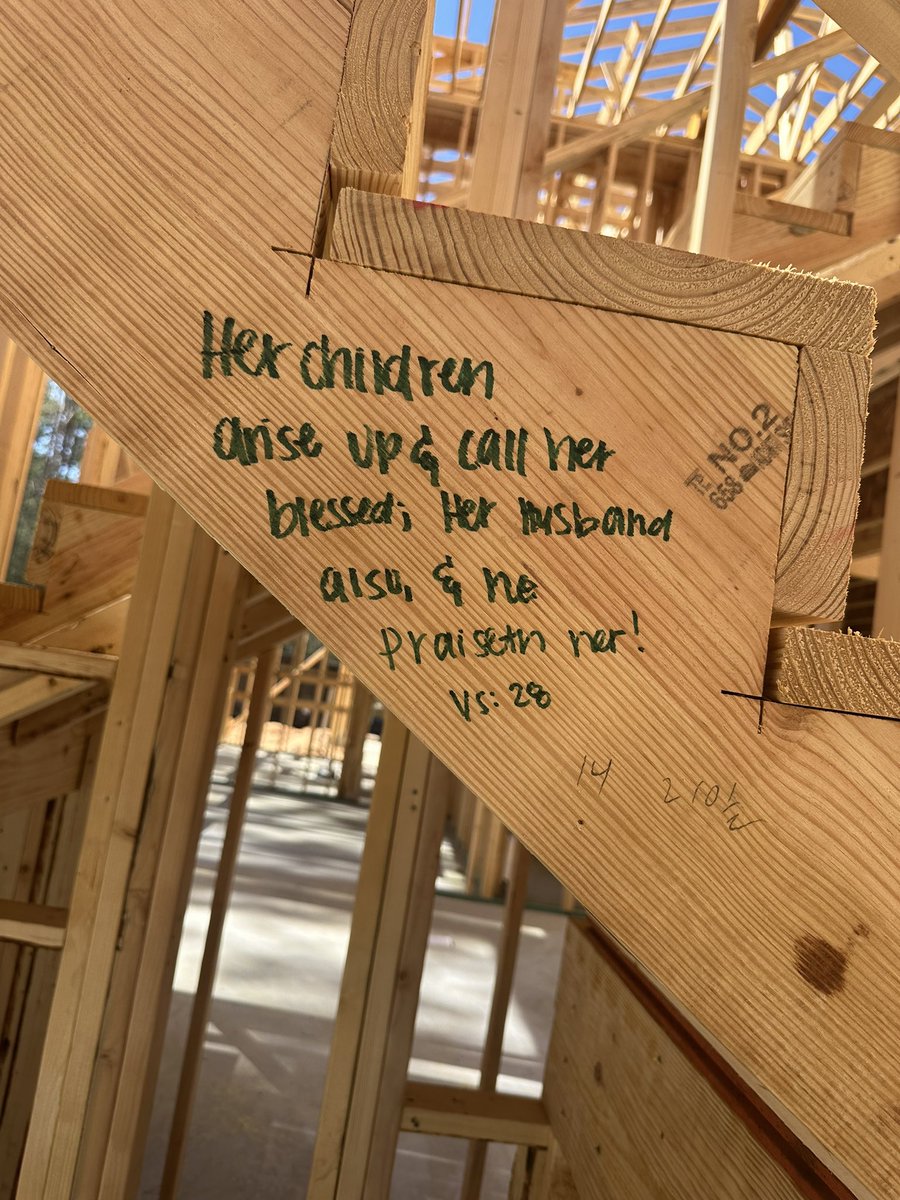 Her children
arise up & call her
blessed; Her husband
also, & he
praiseth her!
vs: 28
NO.2
14